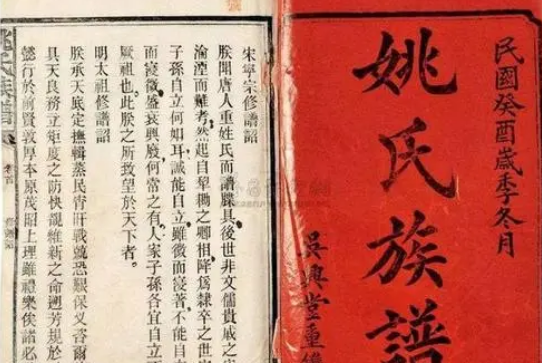 民國癸酉歲季冬月
姚氏族譜
吳興堂重
宋寧宗修譜詔
朕聞唐人重姓氏而譜牒具後世非文儒貴戚之
淪湮而難考然起自犁耦之卿相降爲隸卒之世
子孫自立何如耳誠能自立雖微而寖著不能自
而寖微盛衰興廢何常之有人家子孫各宜自立
厥祖也此朕之所致望於天下者
明太祖修譜詔
朕承天底定撫輯蒸民胥
具天良務立矩度之防快覩維新之命遡芳規於
懿行於前賢敦厚本原茂昭上理雖禮樂俟諸必
姚氏族譜
卷首